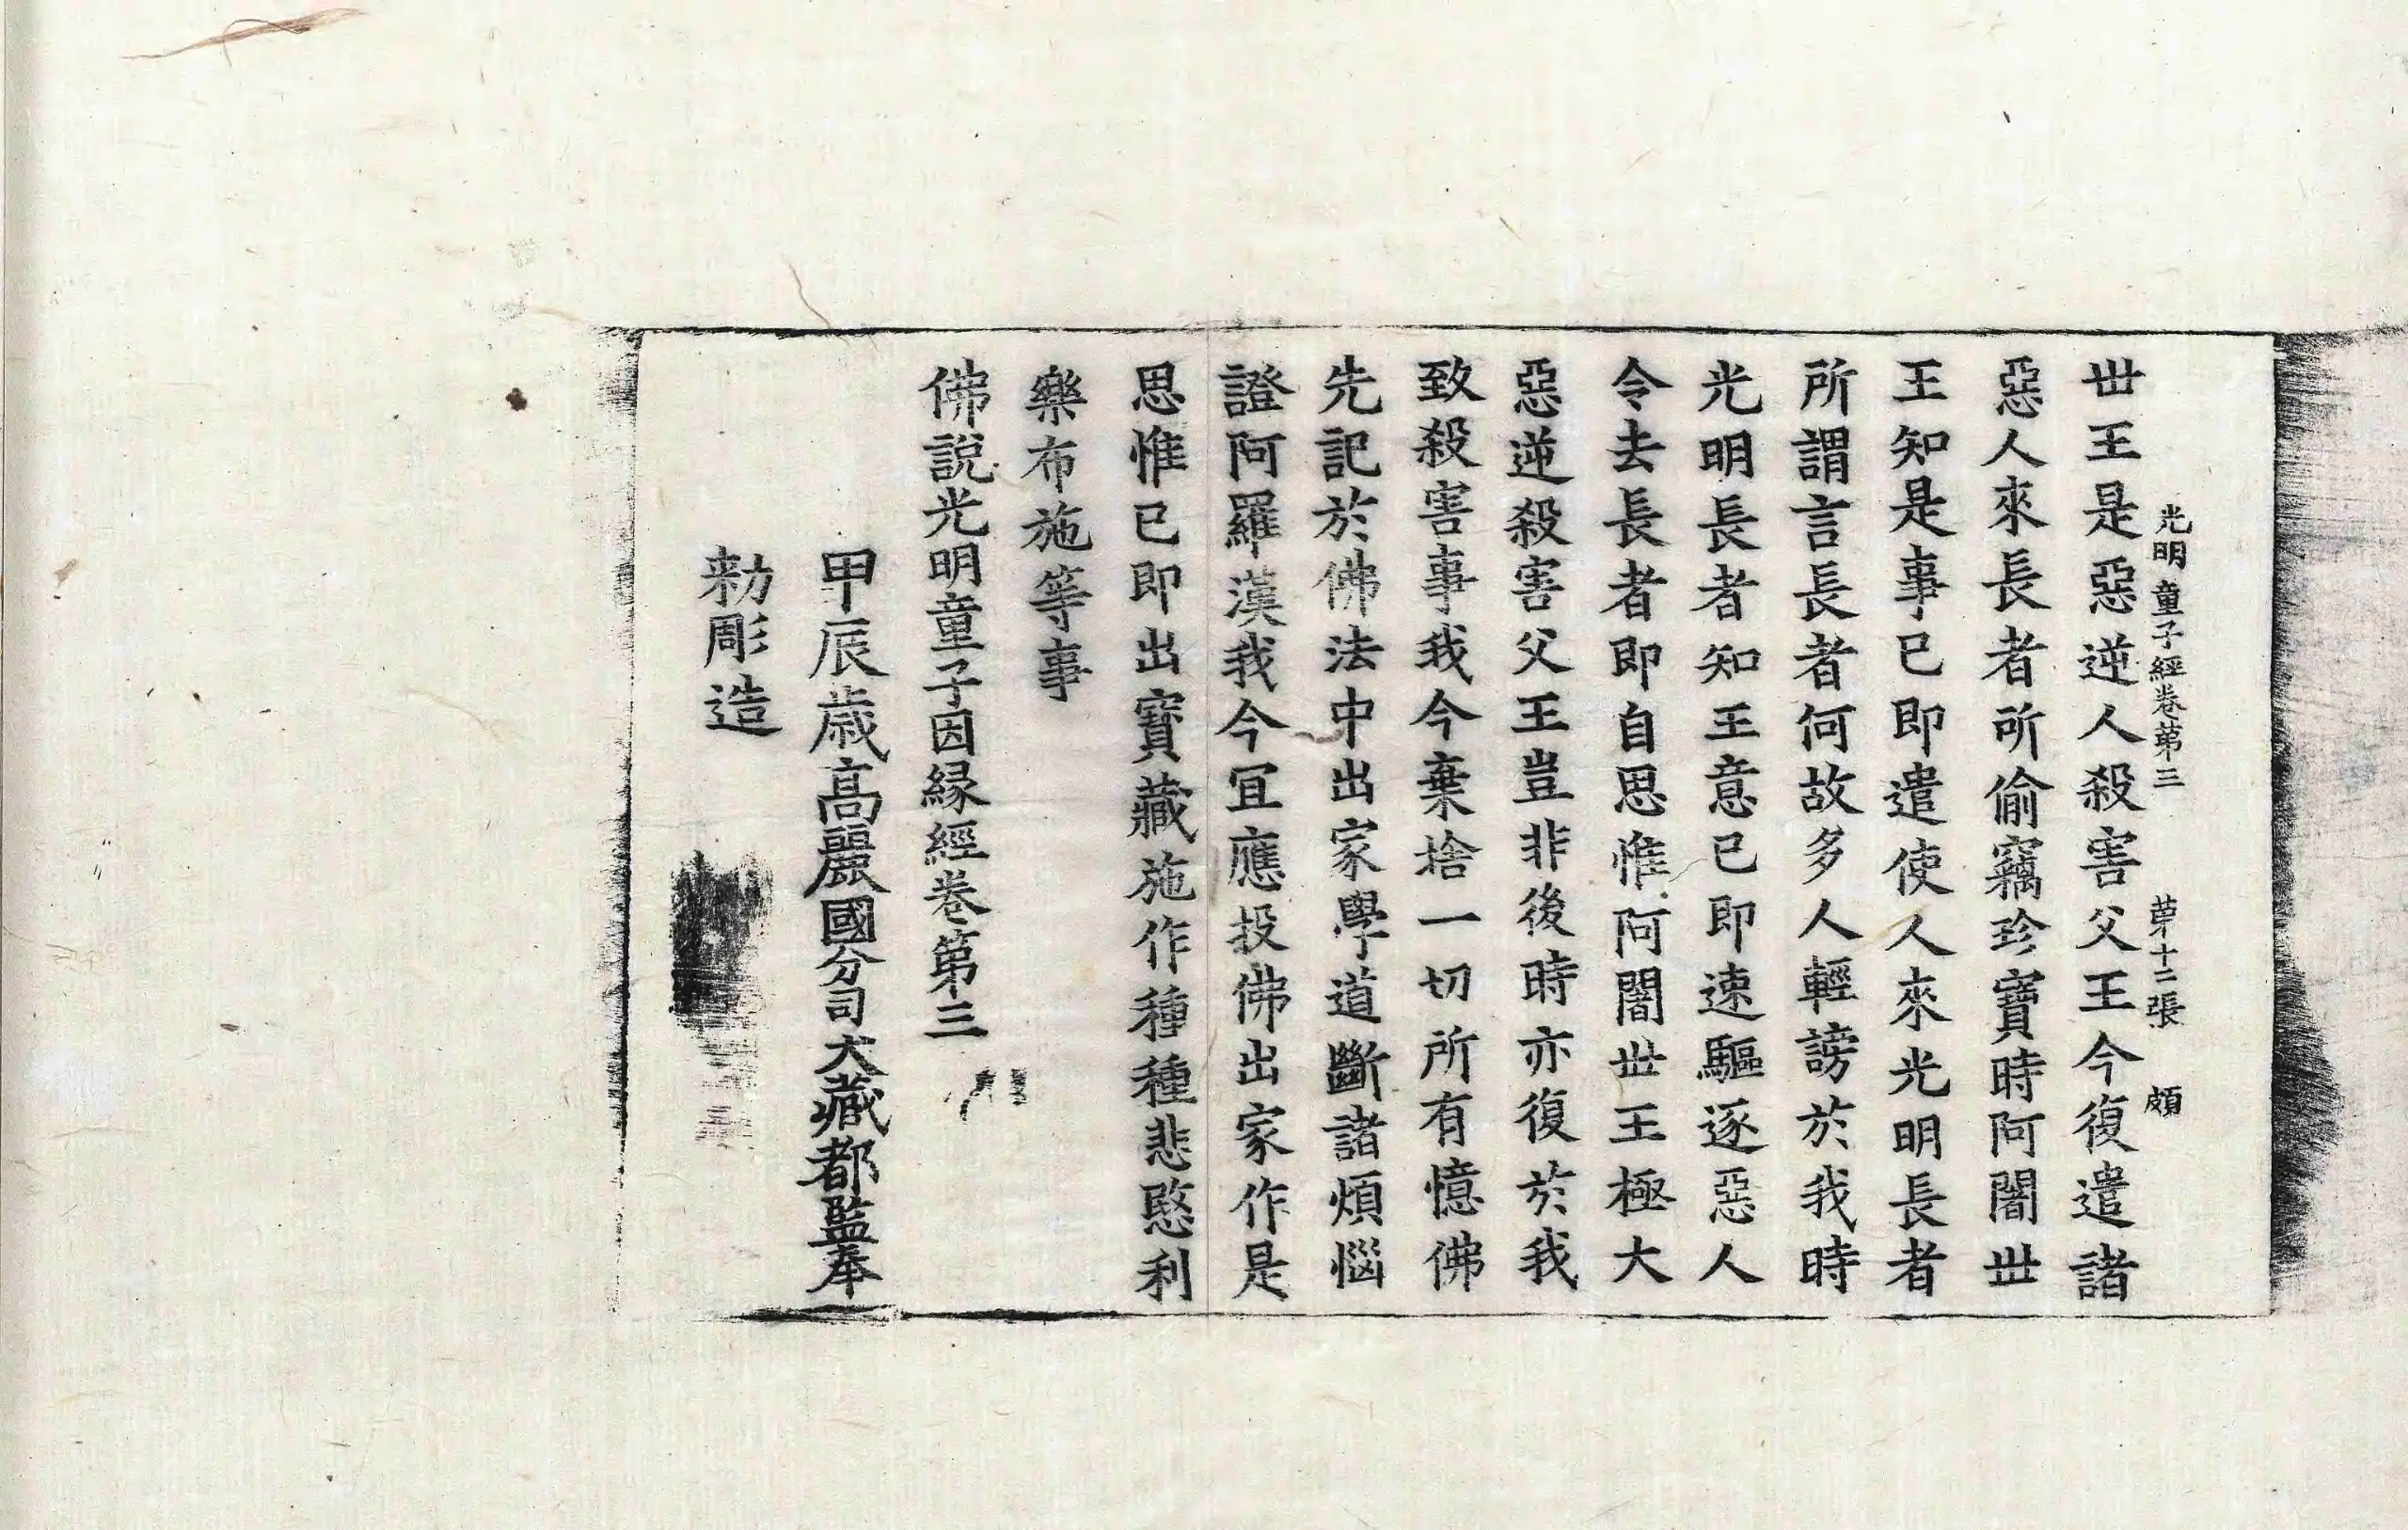 光明童子經卷第三 第十二張 頗
世王是惡逆人殺害父王今復遣諸
惡人來長者所偷竊珍寶時阿闍世
王知是事已即遣使人來光明長者
所謂言長者何故多人輕謗於我時
光明長者知王意已即速驅逐惡人
令去長者即自思惟阿闍世王極大
惡逆殺害父王豈非後時亦復於我
致殺害事我今棄捨一切所有憶佛
先記於佛法中出家學道斷諸煩惱
證阿羅漢我今宜應投佛出家作是
思惟已即出寶藏施作種種悲愍利
樂布施等事
佛說光明童子因緣經卷第三
甲辰歲高麗國分司大藏都監奉
勑彫造